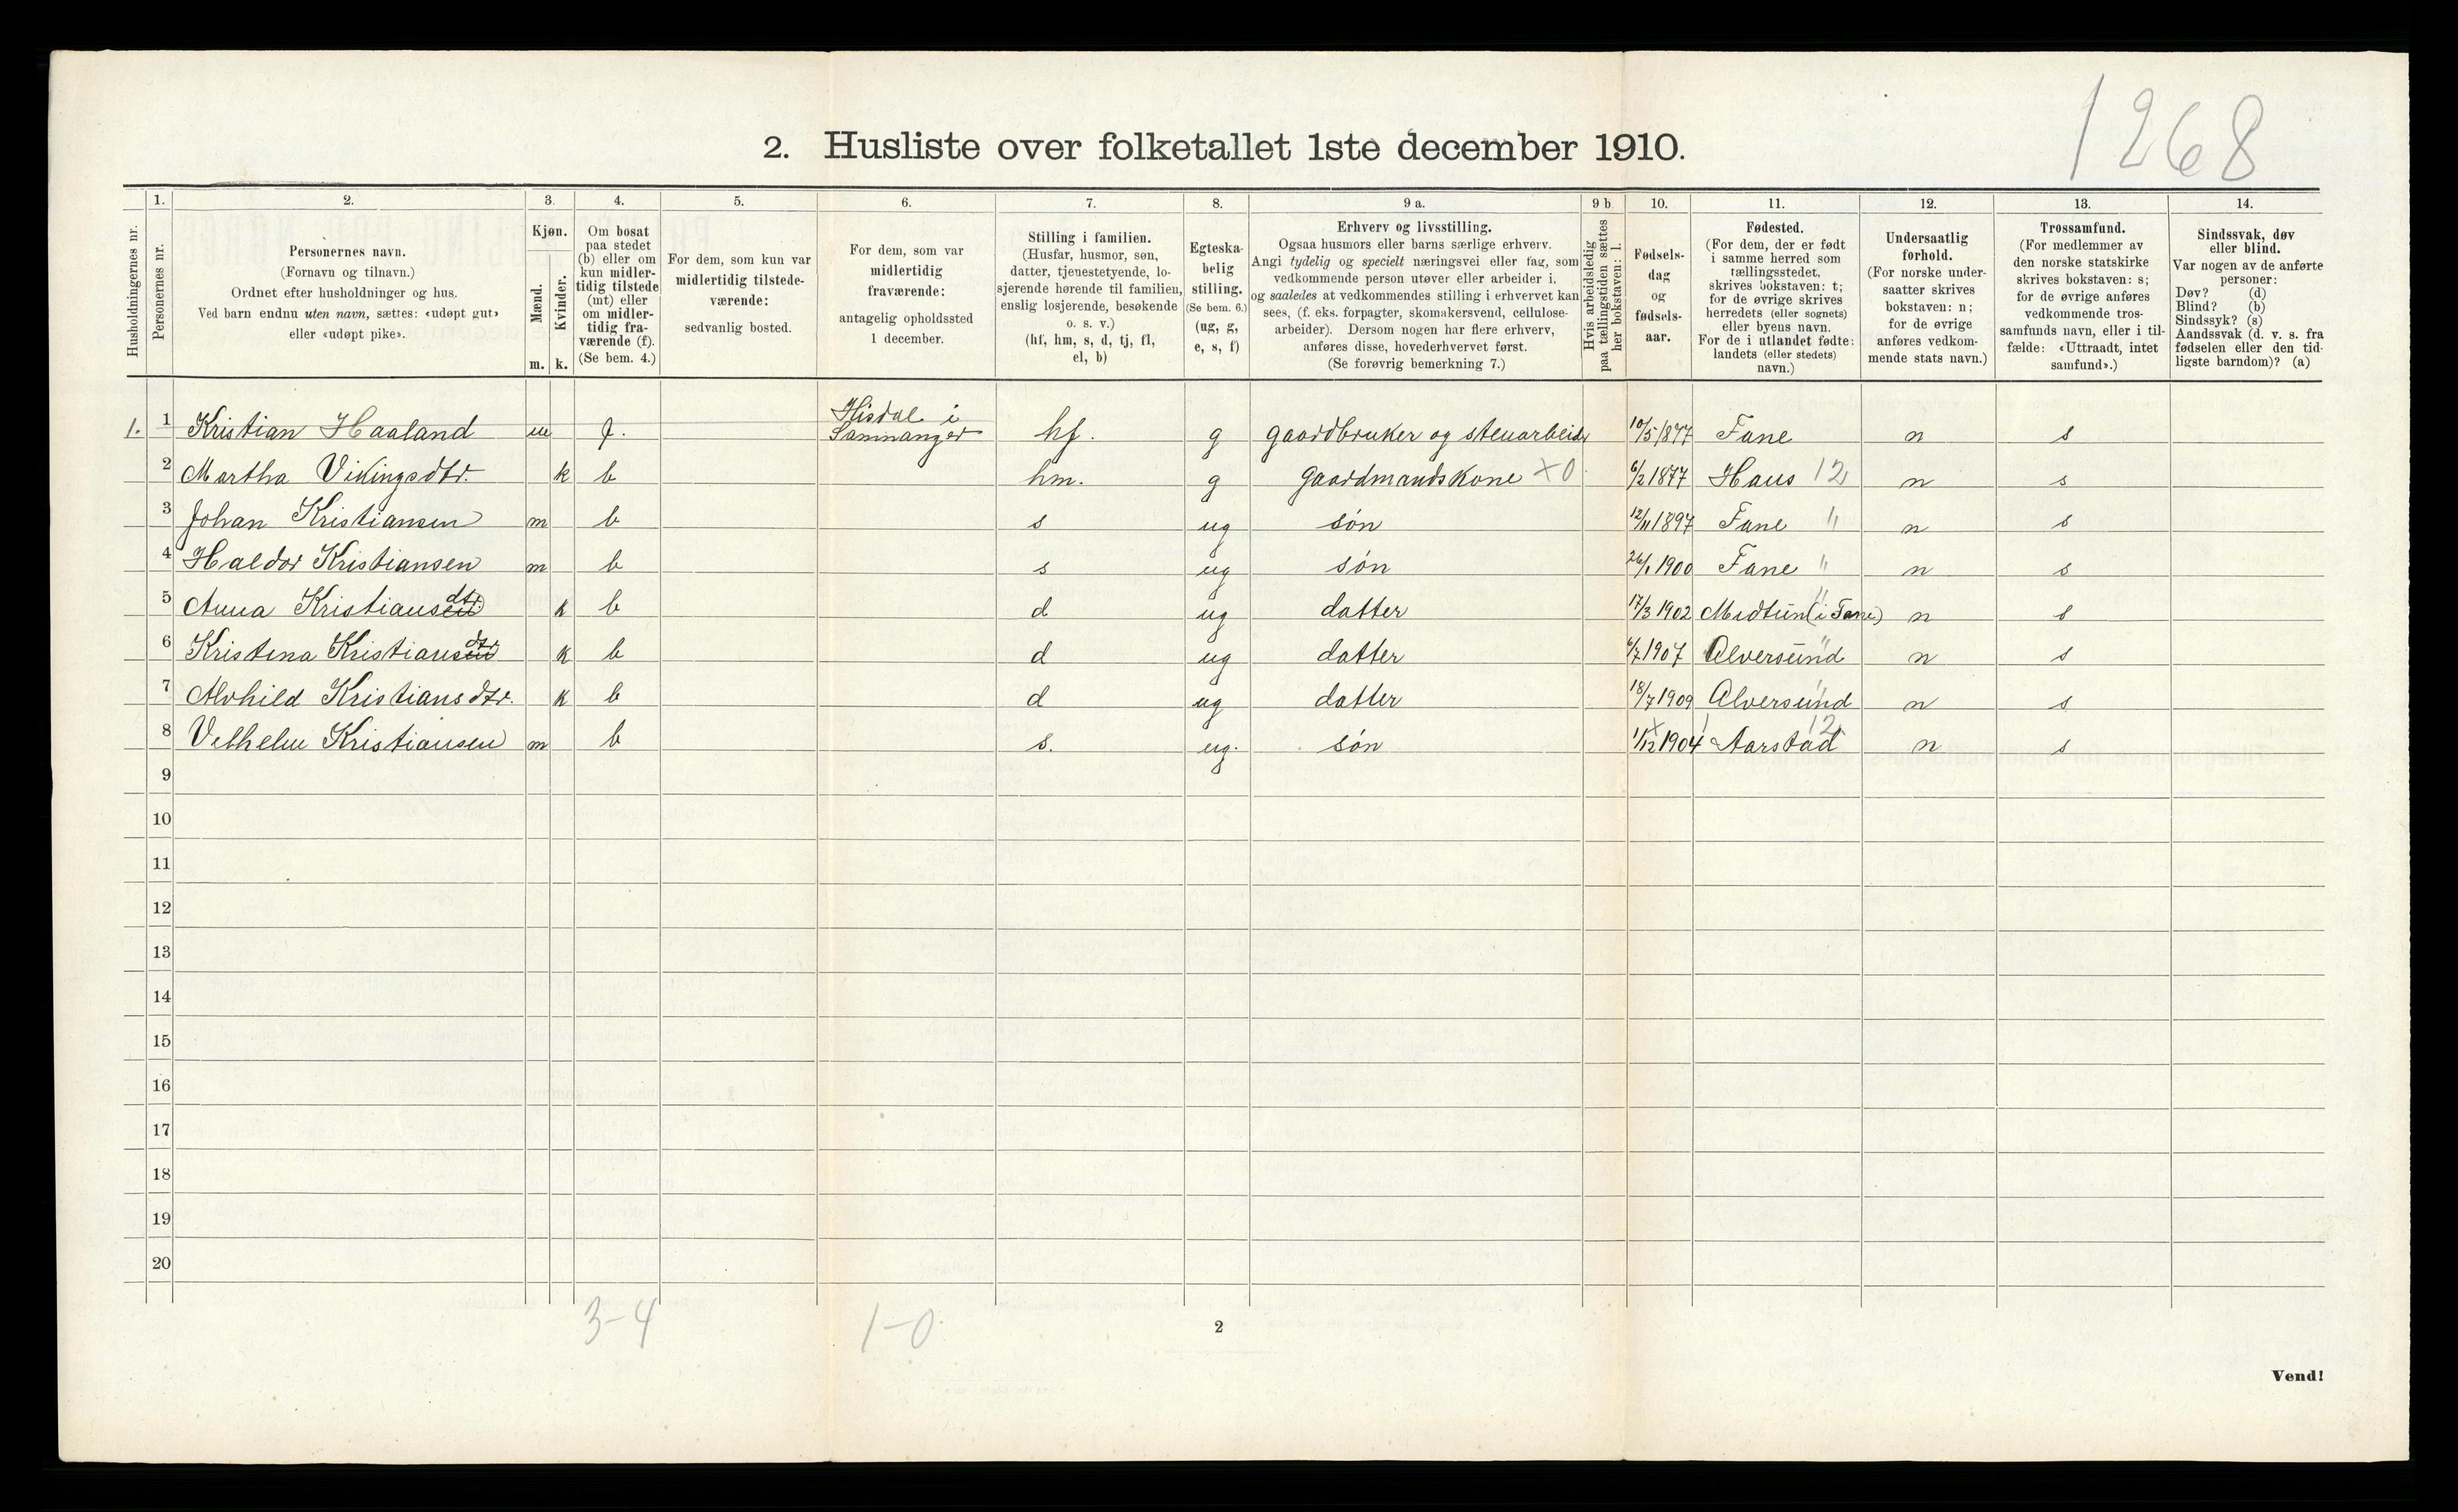 1268
2. Husliste over folketallet 1ste december 1910.
Husholdningernes nr.
1.
Personernes nr.
2.
Personernes navn.
(Fornavn og tilnavn.)
Ordnet efter husholdninger og hus.
Ved barn endnu uten navn, sættes: «udøpt gut»
eller «udøpt pike».
3.
Kjøn.
Mænd.
Kvinder.
m. k.
4.
Om bosat
paa stedet
(b) eller om
kun midler-
tidig tilstede
(mt) eller
om midler-
tidig fra-
værende (f).
(Se bem. 4.)
5.
For dem, som kun var
midlertidig tilstede-
værende:
sedvanlig bosted.
6.
For dem, som var
midlertidig
fraværende:
antagelig opholdssted
1 december.
7.
Stilling i familien.
(Husfar, husmor, søn,
datter, tjenestetyende, lo-
sjerende hørende til familien,
enslig losjerende, besøkende
o. s. v.)
(hf, hm, s, d, tj, fl,
el, b)
8.
Egteska-
belig
stilling.
(Se bem. 6.)
(ug, g,
e, s, f)
9 a.
Erhverv og livsstilling.
Ogsaa husmors eller barns særlige erhverv.
Angi tydelig og specielt næringsvei eller fag, som
vedkommende person utøver eller arbeider i,
og saaledes at vedkommendes stilling i erhvervet kan
sees, (f. eks. forpagter, skomakersvend, cellulose-
arbeider). Dersom nogen har flere erhverv,
anføres disse, hovederhvervet først.
(Se forøvrig bemerkning 7.)
9 b.
Hvis arbeidsledig
paa tællingstiden sættes
her bokstaven: l.
10.
Fødsels-
dag
og
fødsels-
aar.
11.
Fødested.
(For dem, der er født
i samme herred som
tællingsstedet,
skrives bokstaven: t;
for de øvrige skrives
herredets (eller sognets)
eller byens navn.
For de i utlandet fødte:
landets (eller stedets)
navn.)
12.
Undersaatlig
forhold.
(For norske under-
saatter skrives
bokstaven: n;
for de øvrige
anføres vedkom-
mende stats navn.)
13.
Trossamfund.
(For medlemmer av
den norske statskirke
skrives bokstaven: s;
for de øvrige anføres
vedkommende tros-
samfunds navn, eller i til-
fælde: «Uttraadt, intet
samfund».)
14.
Sindssvak, døv
eller blind.
Var nogen av de anførte
personer:
Døv? (d)
Blind? (b)
Sindssyk? (s)
Aandssvak (d. v. s. fra
fødselen eller den tid-
ligste barndom)? (a)
1. 1 Kristian Haaland m f. Hisdal i Samnanger hf. g gaardbruker og stenarbeider 10/5 1877 Fane n s
2 Martha Vikingsdtr. k b hm. g gaardmandskone ×0 6/2 1877 Haus 12 n s
3 Johan Kristiansen m b s ug søn 12/11 1897 Fane " n s
4 Haldor Kristiansen m b s ug søn 26/1 1900 Fane " n s
5 Anna Kristiansdtr. k b d ug datter 17/3 1902 Midtun (i Fane) " n s
6 Kristina Kristiansdtr k b d ug datter 6/7 1907 Alversund " n s
7 Alvhild Kristiansdtr. k b d ug datter 18/7 1909 Alversund " n s
8 Vilhelm Kristiansen m b s. ug. søn 1/12 1904 Aarstad 12 n s
9
10
11
12
13
14
15
16
17
18
19
20
3-4
1-0
2
Vend!